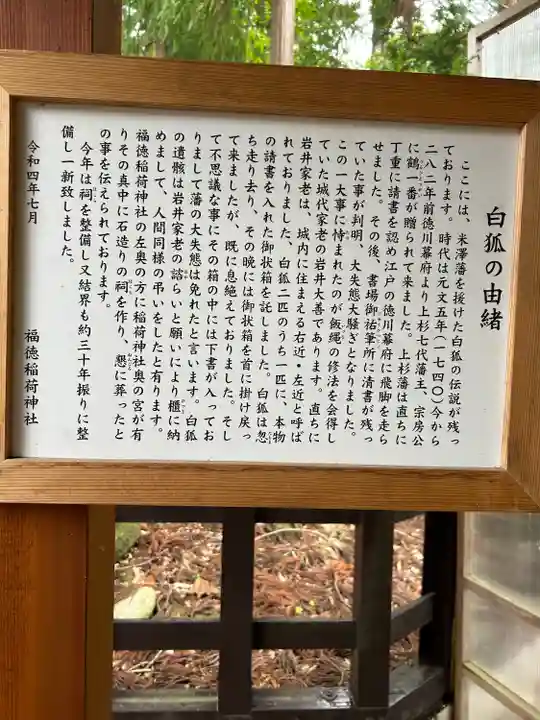 白狐の由緒
ここには、米澤藩を援けた白狐の伝説が残っ
ております。時代は元文五年(一七四〇)今から
二八二年前徳川幕府より上杉七代藩主、宗房公
に鶴一番が贈られて来ました。上杉藩は直ちに
丁重に請書を認め江戸の徳川幕府に飛脚を走ら
せました。その後、書場御祐筆所に清書が残っ
ていた事が判明、大失態大騒ぎとなりました。
この一大事に恃まれたのが飯縄の修法を会得し
ていた城代家老の岩井大善であります。直ちに
岩井家老は、城内に住まえる右近・左近と呼ば
れておりました、白狐二匹のうち一匹に、本物
の請書を入れた御状箱を託しました。白狐は忽
ち走り去り、その晩には御状箱を首に掛け戻っ
て来ましたが、既に息絶えておりました。そし
て不思議な事にその箱の中には下書が入ってお
りまして藩の大失態は免れたと言います。白狐
の遺骸は岩井家老の諮らいと願いにより櫃に納
めまして、人間同様の弔いをしたと有ります。
福徳稲荷神社の左奥の方に稲荷神社奥の宮が有
りその真中に石造りの祠を作り、懇に葬ったと
の事を伝えられております。
今年は祠を整備し又結界も約三十年振りに整
備し一新致しました。
令和四年七月
福徳稲荷神社